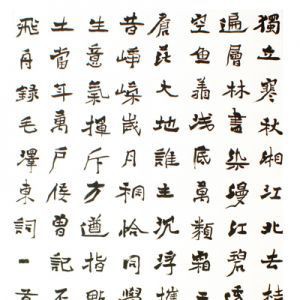 獨立寒秋湘江北去
遍層林盡染漫江碧
空魚翔浅底萬類霜
蒼茫大地誰主沉浮
昔崢嶸歲月稠恰同
生意氣揮斥方遒指
土當年萬戶侯曾記
飛舟錄毛澤東詞一